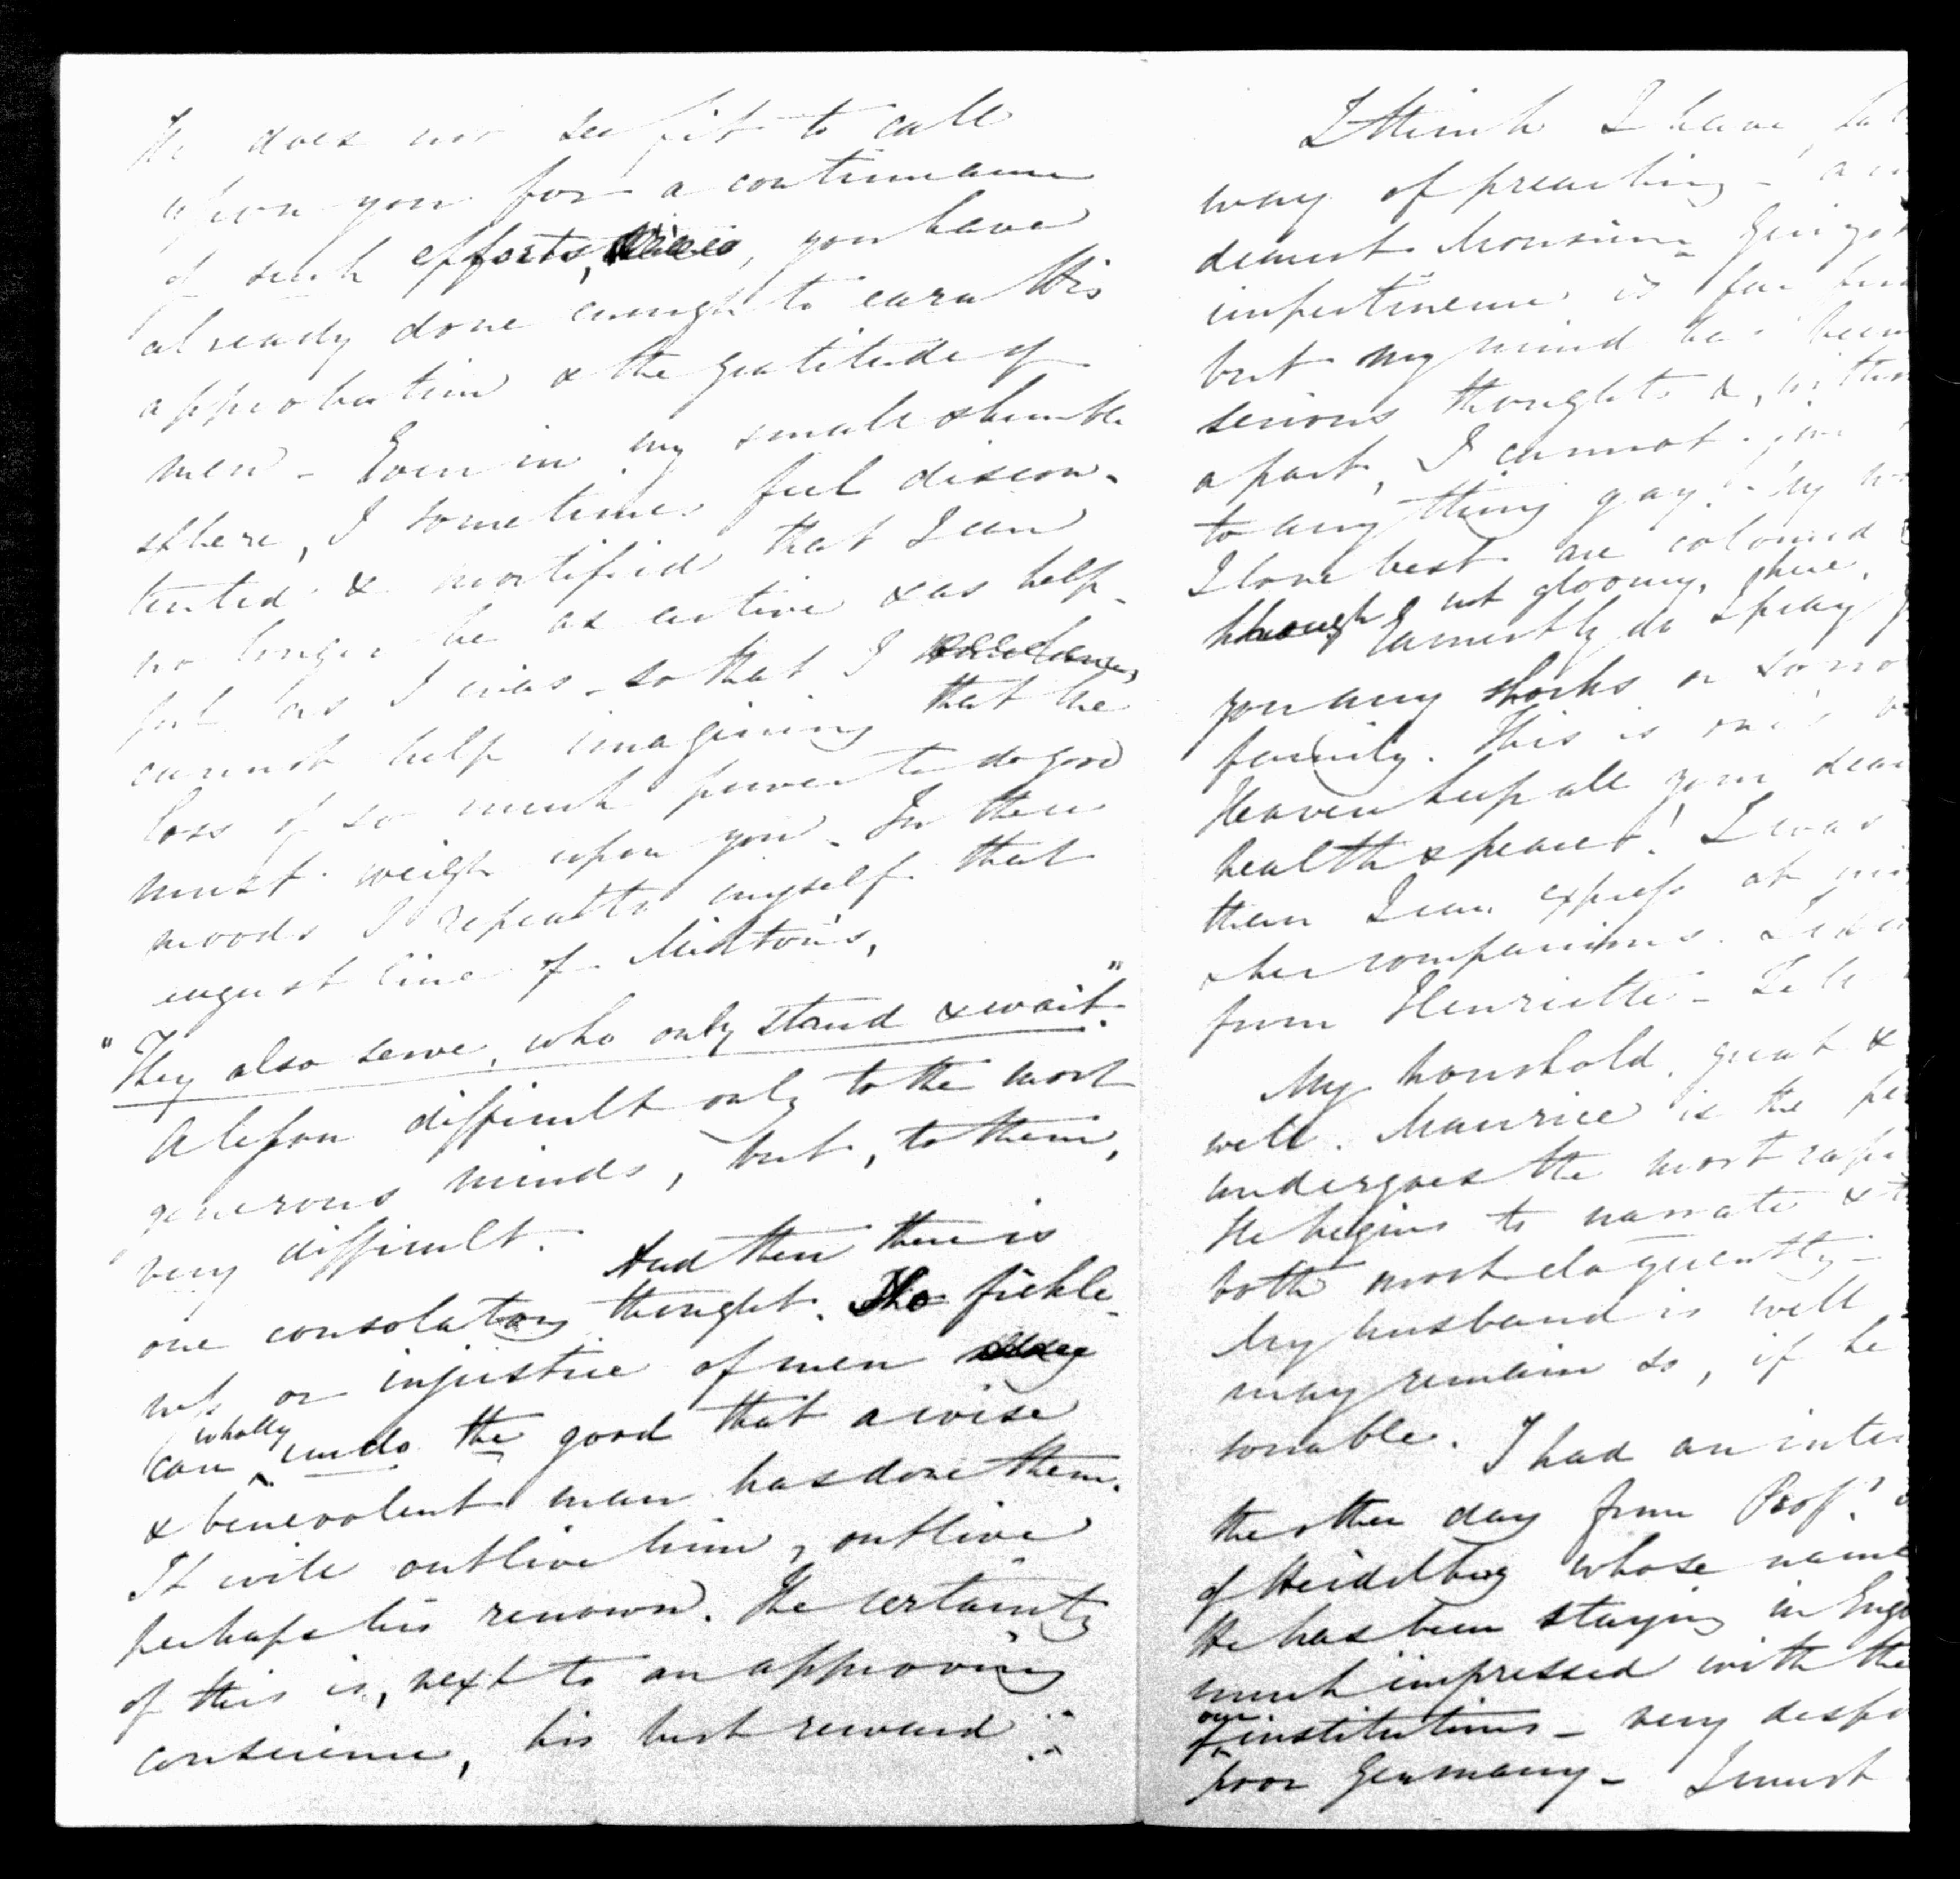 He does not see fit to call
upon you for a continuance
of such efforts, you have
already done enough to earn His
approbation & the gratitude of
men - Even in my small & humble
sphere, I sometimes feel discon-
tented & mortified that I can
no longer be as active & as help-
ful as I was - so that I
cannot help imagining that the
loss of so much power to do good
must weigh upon you. In these
moods I repeat to myself that
august line of Milton's,
"They also serve, who only stand & wait."
A lesson difficult only to the most
generous minds, but, to them,
very difficult. And then there is
one consolatory thought. No fickle-
ness or injustice of men
can wholly undo the good that a wise
& benevolent man has done them.
It will outlive him, outlive
perhaps his renown. The certainty
of this is, next to an approving
conscience, his best reward
I think I have
way of preaching -
dearest Monsieur Guizot
impertinence is far
but my mind has been
serious thoughts &,
apart, I cannot
to any thing gay. My
I love best are coloured
though not gloomy, hue.
Earnestly do I pray
you any shocks or sorrow
family. This is one's
Heaven keep all your dear
health & peace! I was
than I can express at
& her companions.
from Henriette -
My household, great &
well. Maurice is the
undergoes the most
He begins to narrate &
both most eloquently -
My husband is well
may remain so, if he
sonable. I had an
the other day from Prof.
of Heidelberg whose name
He has been staying in
much impressed with the
of our institutions - very
poor Germany - I must